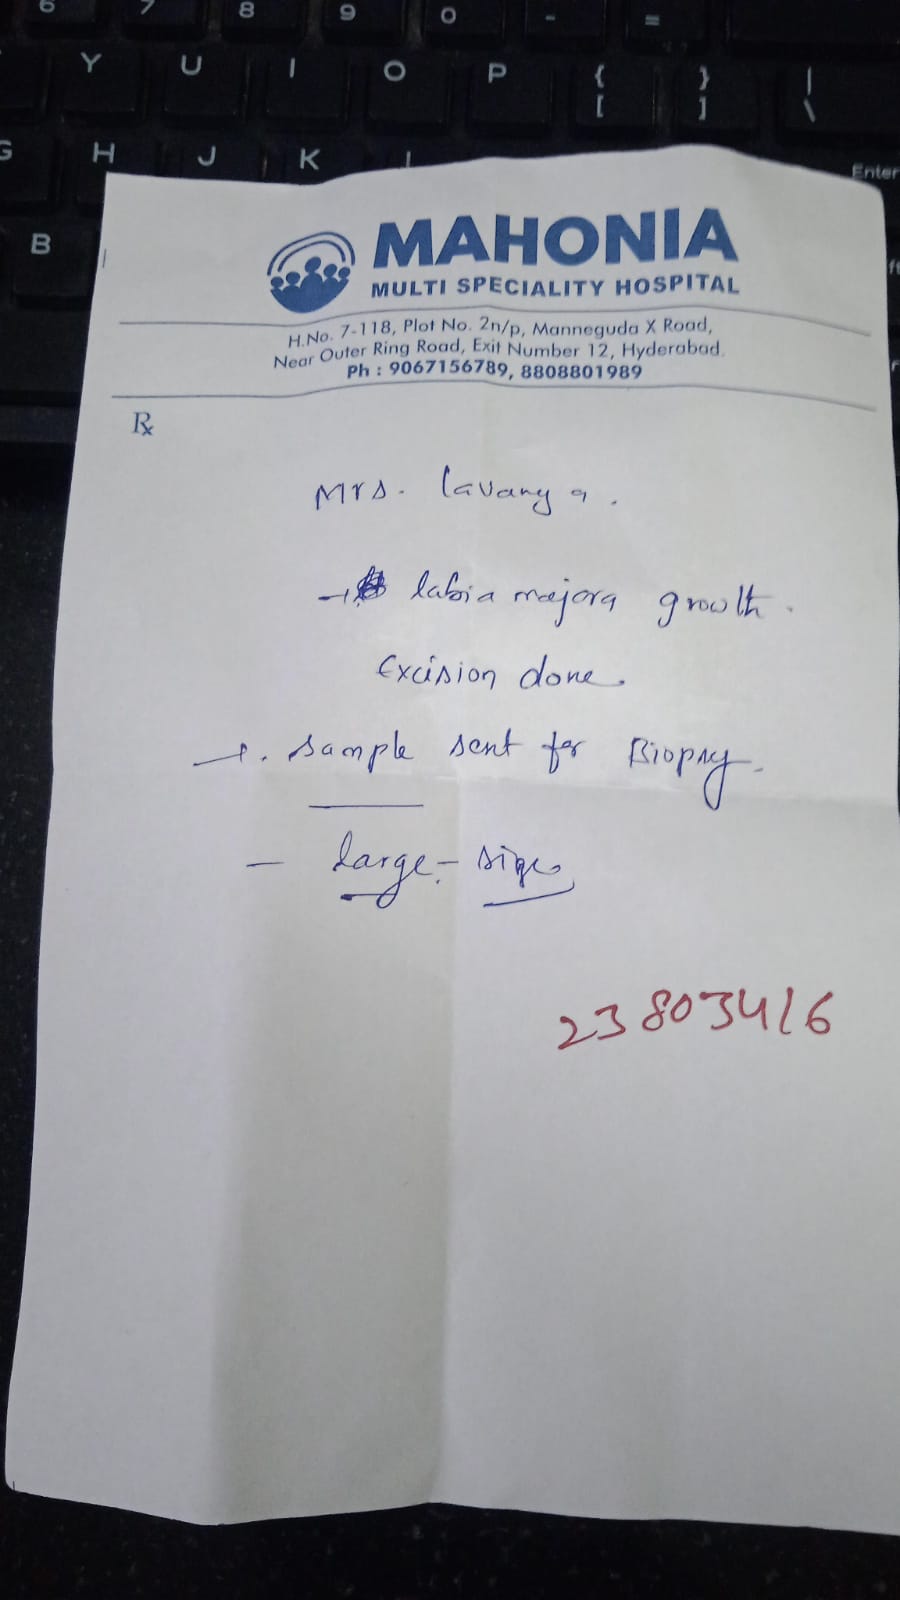 6 7 8 9 0 - =
Y U I O P { [ } ] | \
G H J K L Enter
B
MAHONIA
MULTI SPECIALITY HOSPITAL
H.No. 7-118, Plot No. 2n/p, Manneguda X Road,
Near Outer Ring Road, Exit Number 12, Hyderabad.
Ph : 9067156789, 8808801989
℞
Mrs. Lavanya.
labia majora growth.
Excision done.
sample sent for Biopsy.
- large - size
23803416